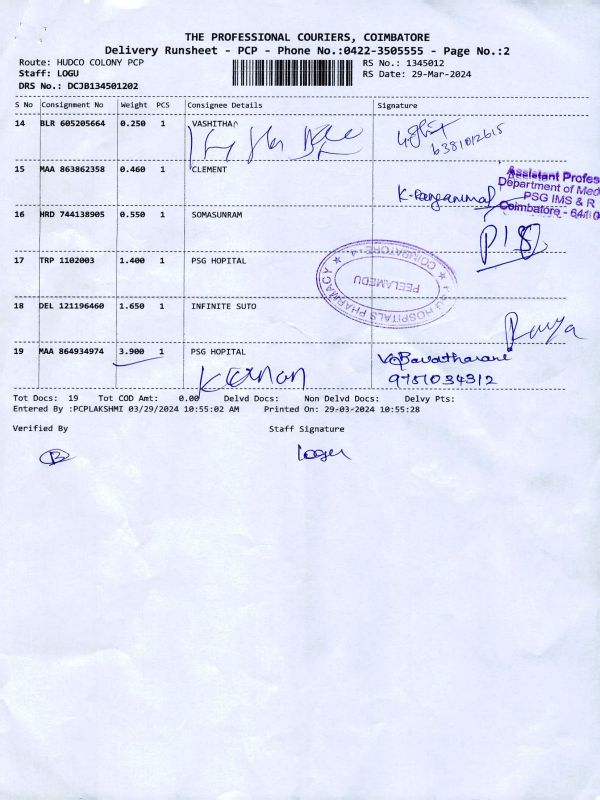 THE PROFESSIONAL COURIERS, COIMBATORE
Delivery Runsheet - PCP - Phone No.:0422-3505555 - Page No.:2
Route: HUDCO COLONY PCP RS No.: 1345012
Staff: LOGU RS Date: 29-Mar-2024
DRS No.: DCJB134501202
S No Consignment No Weight PCS Consignee Details Signature
14 BLR 605205664 0.250 1 VASHITHA
6381012615
15 MAA 863862358 0.460 1 CLEMENT
Assistant Profes
Department of Med
PSG IMS & R
Coimbatore - 641 0
K. Ranganimal
16 HRD 744138905 0.550 1 SOMASUNRAM
17 TRP 1102003 1.400 1 PSG HOPITAL
HOSPITALS PHARMACY
PEELAMEDU
COIMBATORE
18 DEL 121196460 1.650 1 INFINITE SUTO
Ramya
19 MAA 864934974 3.900 1 PSG HOPITAL
Kannan
Bavatharani
9751034312
Tot Docs: 19 Tot COD Amt: 0.00 Delvd Docs: Non Delvd Docs: Delvy Pts:
Entered By :PCPLAKSHMI 03/29/2024 10:55:02 AM Printed On: 29-03-2024 10:55:28
Verified By Staff Signature
B